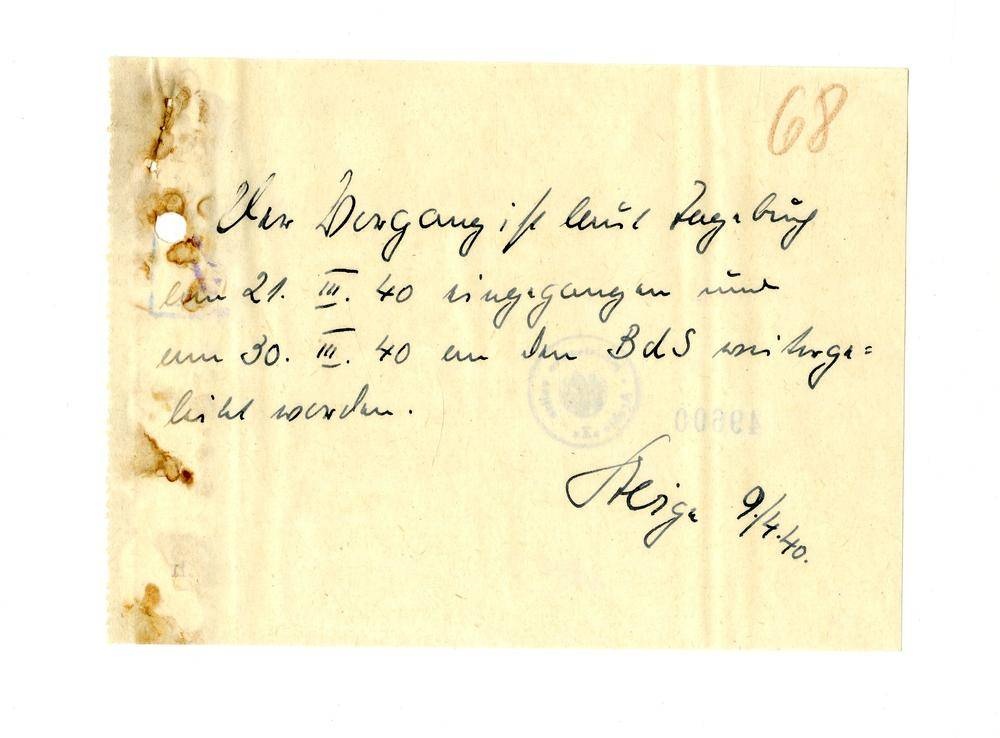 68
Der Vorgang ist laut Tagebuch
am 21. III. 40 eingegangen und
am 30. III. 40 an den BdS weiterge=
leitet worden.
9./4.40.
49600